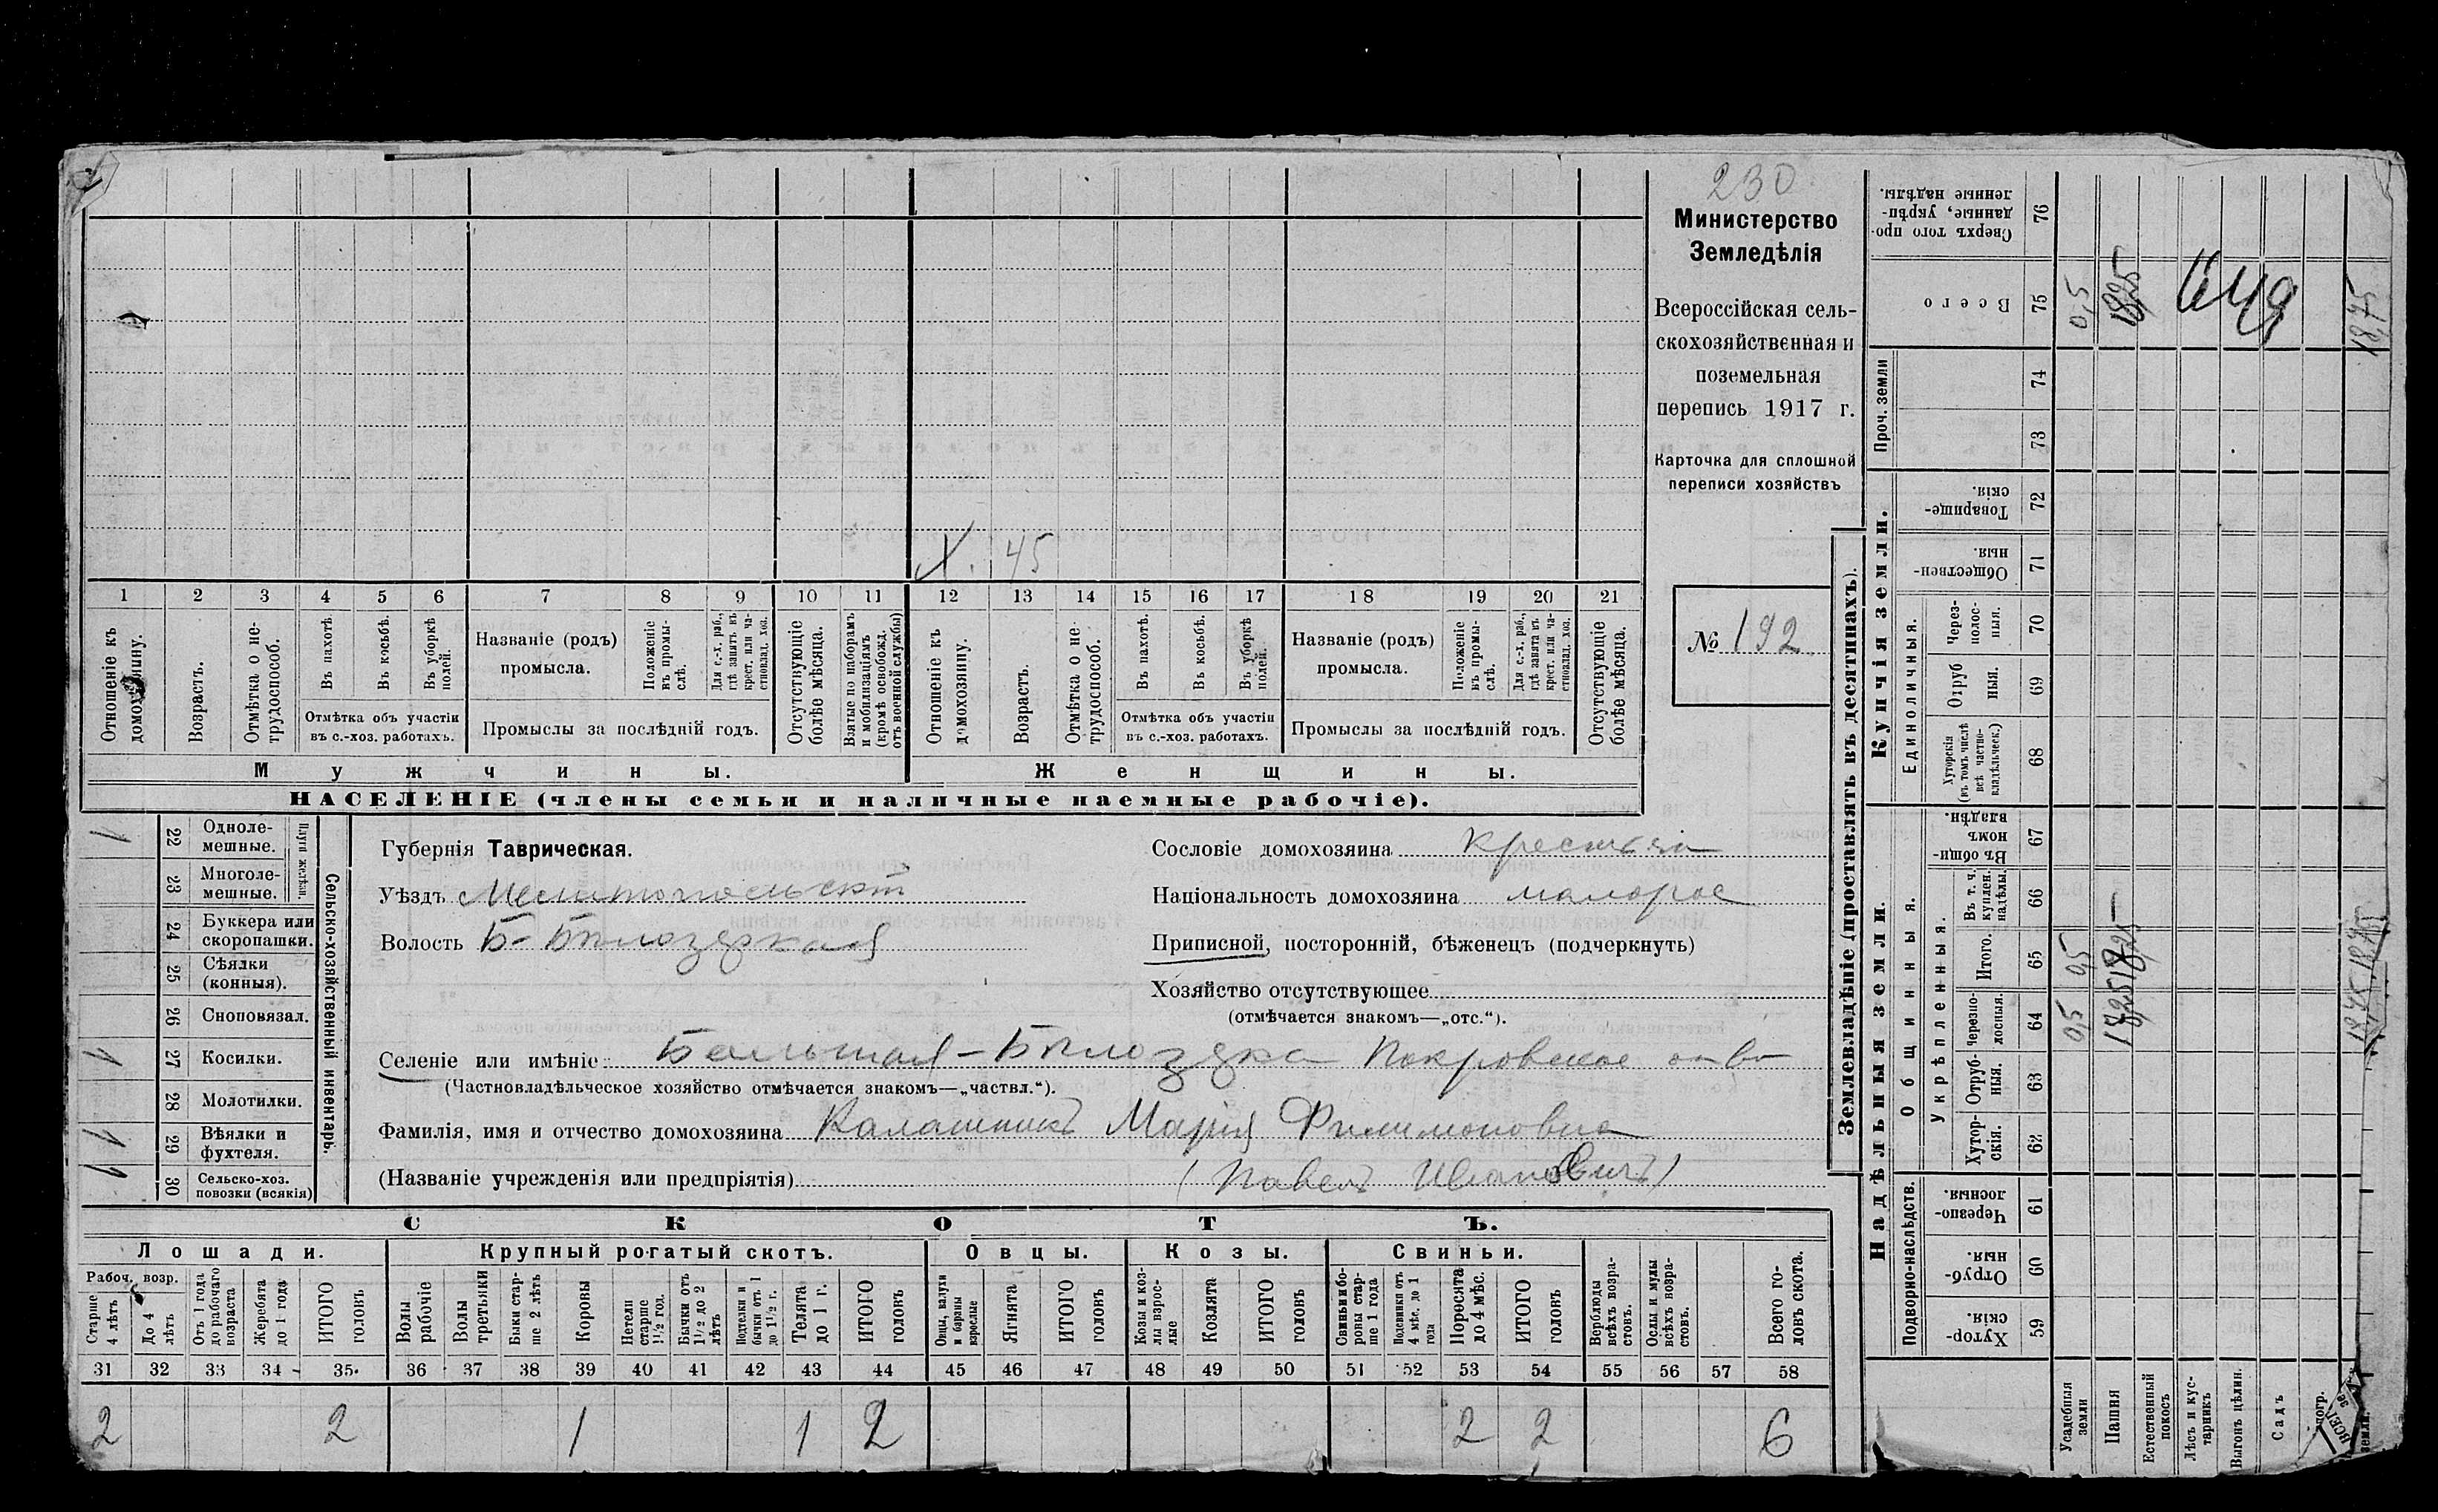 230
Министерство
Земледѣлія
Всероссійская сель-
скохозяйственная и
поземельная
перепись 1917 г.
Карточка для сплошной
переписи хозяйствъ
№ 192
Х. 45
1 2 3 4 5 6 7 8 9 10 11 12 13 14 15 16 17 18 19 20 21
Отношеніе къ домохозяину.
Возрастъ.
Отмѣтка о не-трудоспособ.
Въ пахотѣ.
Въ косьбѣ.
Въ уборкѣ полей.
Отмѣтка объ участіи
въ с.-хоз. работахъ.
Названіе (родъ)
промысла.
Положеніе въ промы-слѣ.
Для с.-х. раб., гдѣ занятъ въ крест. или ча-стновлад. хоз.
Промыслы за послѣдній годъ.
Отсутствующіе болѣе мѣсяца.
Взятые по наборамъ и мобилизаціямъ (кромѣ освобожд. отъ военной службы)
Отношеніе къ домохозяину.
Возрастъ.
Отмѣтка о не трудоспособ.
Въ пахотѣ.
Въ косьбѣ.
Въ уборкѣ полей.
Отмѣтка объ участіи
въ с.-хоз. работахъ.
Названіе (родъ)
промысла.
Положеніе въ промы-слѣ.
Для с.-х. раб., гдѣ занятъ въ крест. или ча-стновлад. хоз.
Промыслы за послѣдній годъ.
Отсутствующіе болѣе мѣсяца.
Мужчины. Женщины.
НАСЕЛЕНІЕ (члены семьи и наличные наемные рабочіе).
Сельско-хозяйственный инвентарь.
Плуги желѣзн.
1 22 Одноле-мешные.
23 Многоле-мешные.
24 Буккера или скоропашки.
25 Сѣялки (конныя).
26 Сноповязал.
1 27 Косилки.
28 Молотилки.
1 29 Вѣялки и фухтеля.
1 30 Сельско-хоз. повозки (всякія)
Губернія Таврическая.
Уѣздъ Мелитопольскій
Волость Б-Бѣлозерская
Сословіе домохозяина крестьян
Національность домохозяина малорос
Приписной, посторонній, бѣженецъ (подчеркнуть)
Хозяйство отсутствующее
(отмѣчается знакомъ—„отс.“).
Селеніе или имѣніе: Большая-Бѣлозерка Покровское о-во
(Частновладѣльческое хозяйство отмѣчается знакомъ—„частвл.“).
Фамилія, имя и отчество домохозяина Калашникъ Марія Филимоновна
(Названіе учрежденія или предпріятія) (Павелъ Ивановичъ)
СКОТЪ.
Лошади. Крупный рогатый скотъ. Овцы. Козы. Свиньи.
Рабоч. возр.
Старше 4 лѣтъ
До 4 лѣтъ
Отъ 1 года до рабочаго возраста
Жеребята до 1 года
ИТОГО головъ
Волы рабочіе
Волы третьяки
Быки стар-ше 2 лѣтъ
Коровы
Нетели старше 1½ год.
Бычки отъ 1½ до 2 лѣтъ
Подтелки и бычки отъ 1 до 1½ г.
Телята до 1 г.
ИТОГО головъ
Овцы, валухи и бараны взрослые
Ягнята
ИТОГО головъ
Козы и коз-лы взрос-лые
Козлята
ИТОГО головъ
Свиньи и бо-ровы стар-ше 1 года
Подсвинки отъ 4 мѣс. до 1 года
Поросята до 4 мѣс.
ИТОГО головъ
Верблюды всѣхъ возра-стовъ.
Ослы и мулы всѣхъ возра-стовъ.
Всего го-ловъ скота.
31 32 33 34 35 36 37 38 39 40 41 42 43 44 45 46 47 48 49 50 51 52 53 54 55 56 57 58
2 2 1 1 2 2 2 6
Землевладѣніе (проставлять въ десятинахъ).
Сверхъ того про-данные, укрѣп-ленные надѣлы. 76
Всего 75 0,5 18,75
Проч. земли 74 73
Купчія земли.
Товарище-скія. 72
Обществен-ныя. 71
Единоличныя.
Через-полос-ныя. 70
Отруб ныя. 69
Хуторскія (въ томъ числѣ всѣ частно-владѣльческ.) 68
Надѣльныя земли.
Общинныя.
Въ общи-номъ владѣн. 67
Укрѣпленныя.
Въ т. ч. куплен. надѣлы. 66
Итого. 65 0,5
Черезпо-лосныя. 64 0,5
Отруб-ныя. 63
Хутор-скія. 62
Подворно-наслѣдств.
Черезпо-лосныя. 61
Отруб-ныя. 60
Хутор-скія. 59
Усадебныя земли
Пашня
Естественный покосъ
Лѣсъ и кус-тарникъ
Выгонъ цѣлин.
Садъ